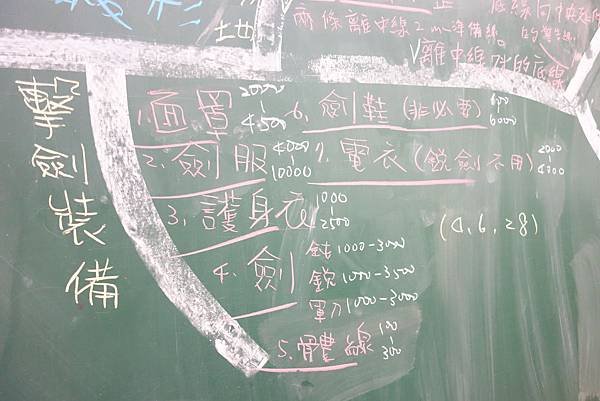 擊劍裝備
地
兩條離中線2m準備線
離中線7m的底線
1.面罩 2000-4500
2.劍服 4000-10000
3.護身衣 1000-2500
4.劍
鈍1000-3000
銳1000-3500
軍刀1000-3000
5.體線 100-300
6.劍鞋(非必要) 600-6000
7.電衣(銳劍不用) 2000-4000